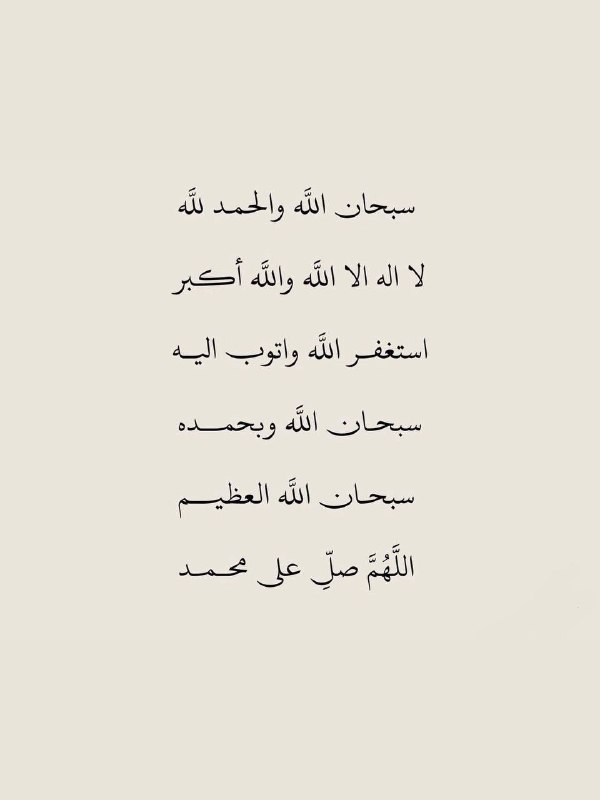 سبحان اللَّه والحمد للَّه
لا اله الا اللَّه واللَّه أكبر
استغفر اللَّه واتوب اليه
سبحان اللَّه وبحمده
سبحان اللَّه العظيم
اللَّهُمَّ صلِّ على محمد